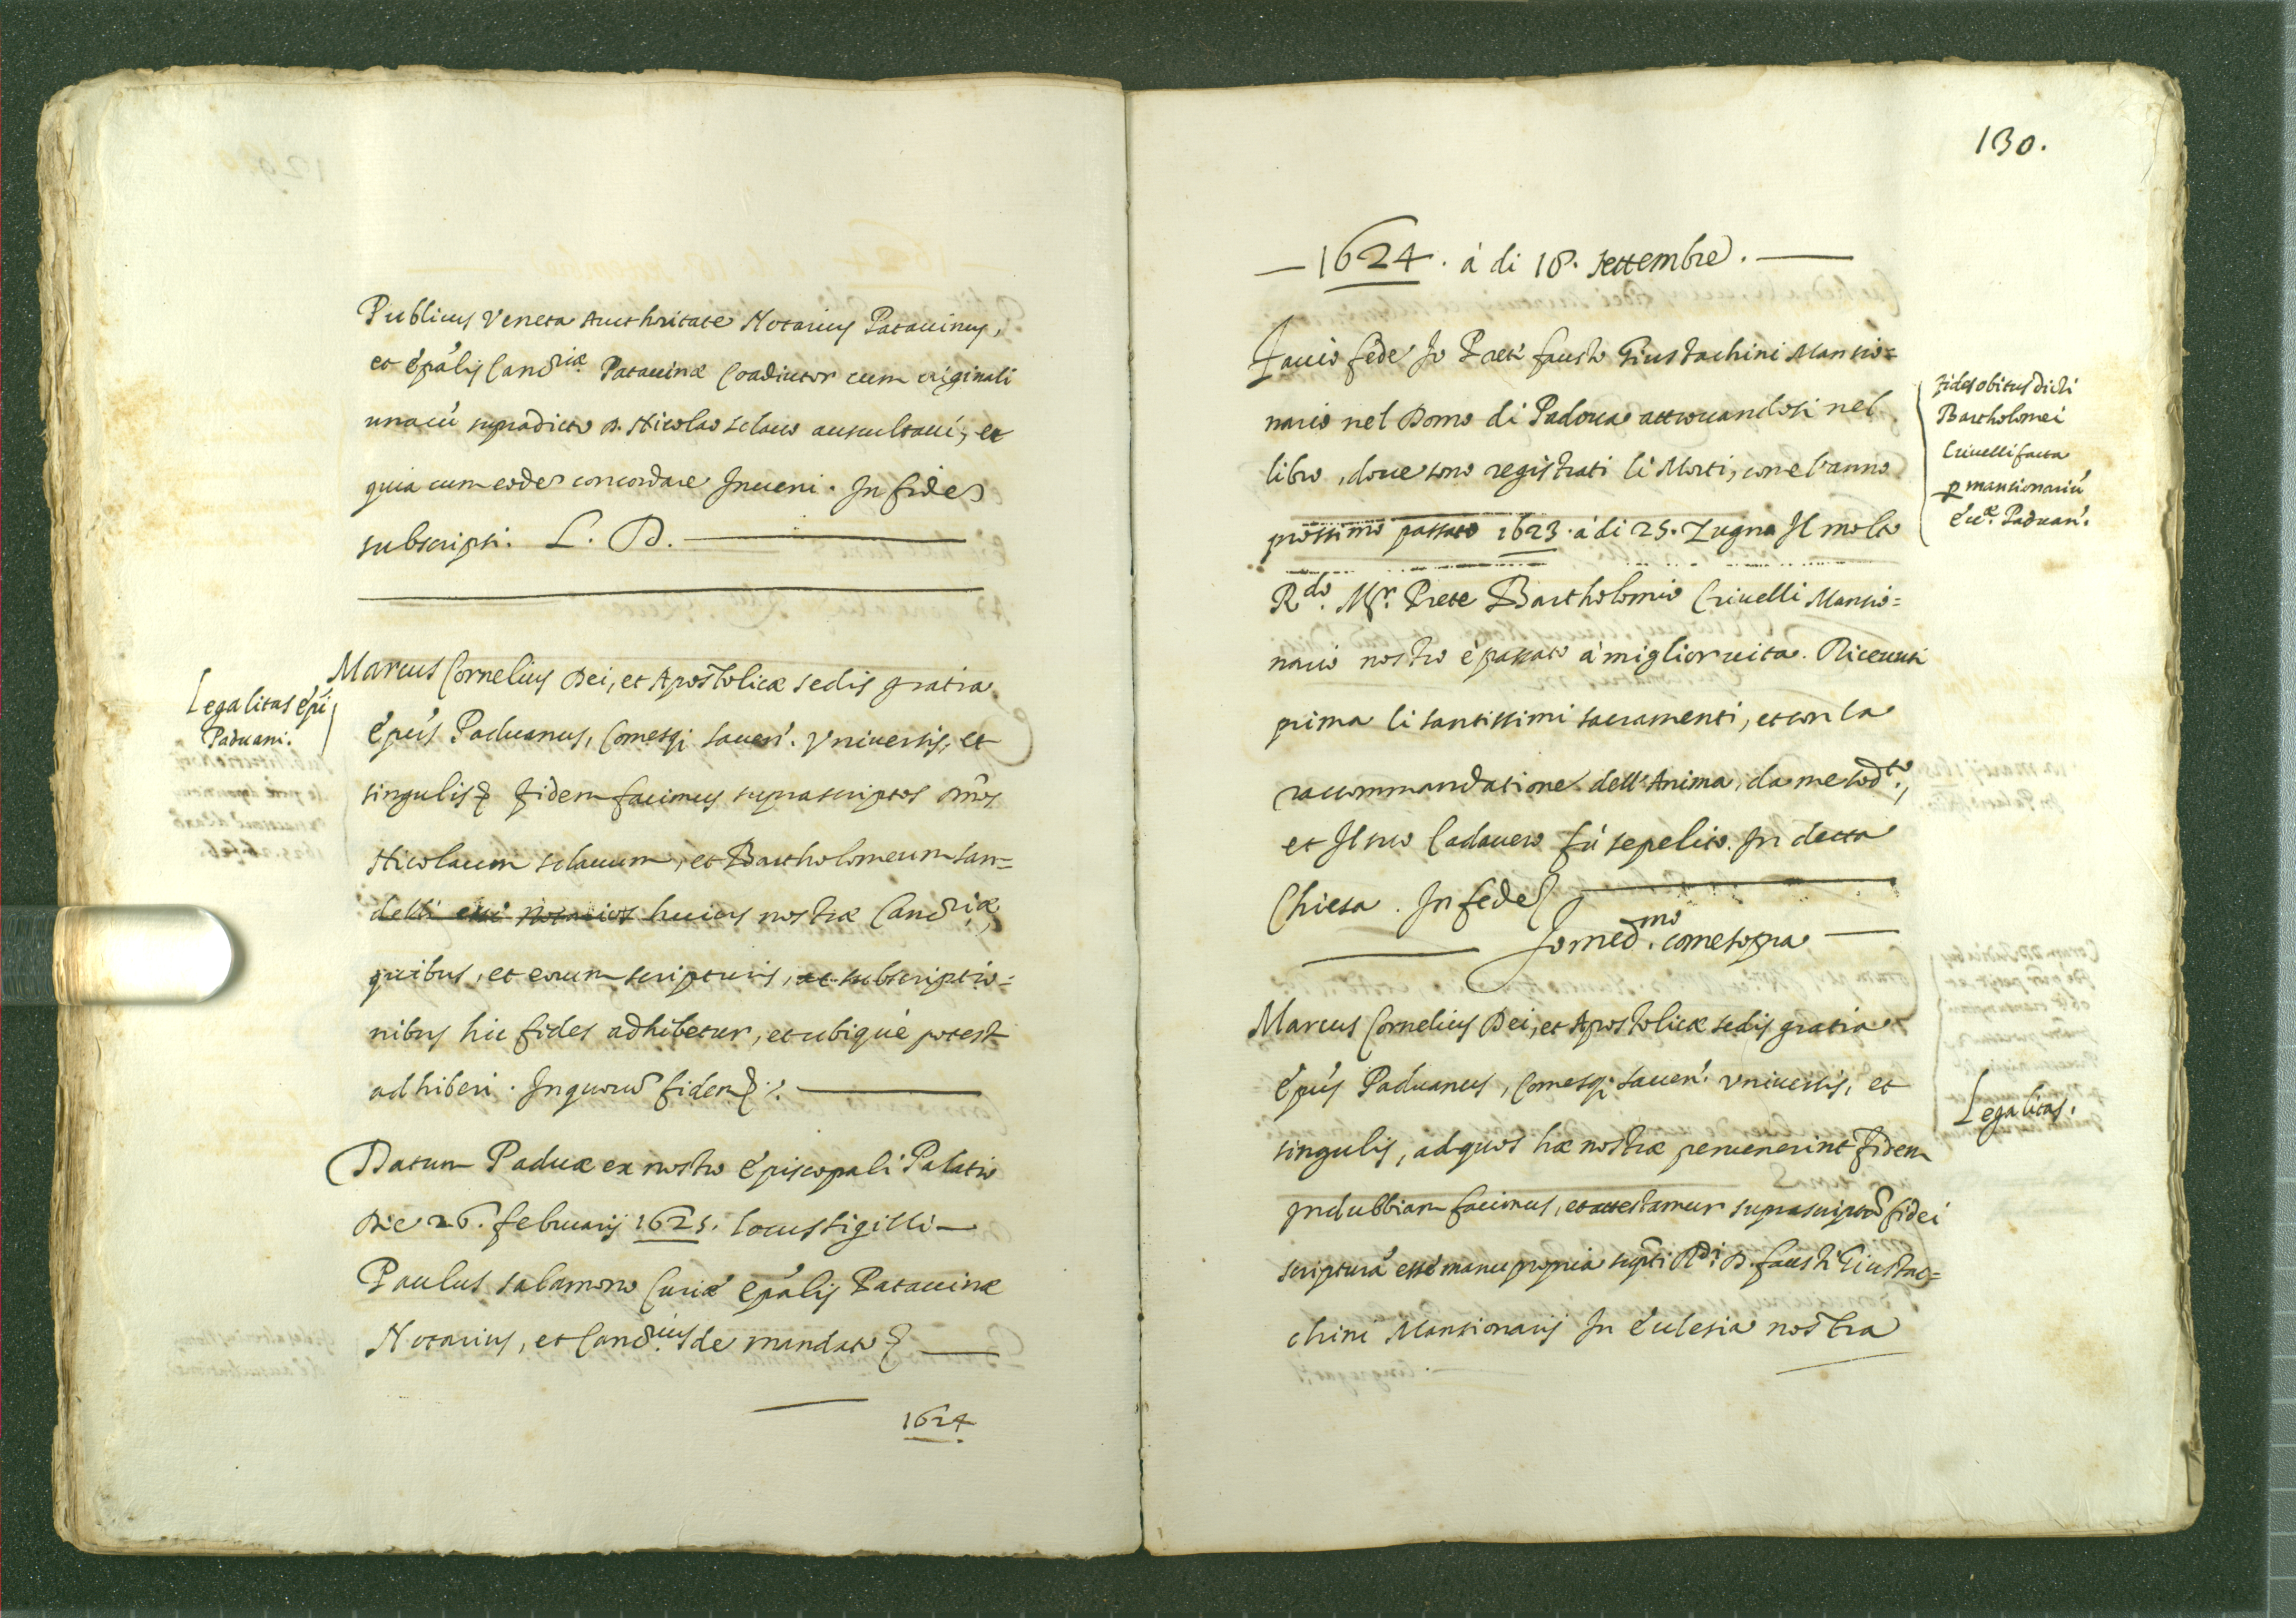 Publicus Veneta Aucthoritate Notarius Patauinus,
et ep̃alis Canc.riæ Patauinæ Coadiutor cum originali
unacũ supradicto D. Nicolao sclauo auscultaui, et
quia cum eodẽ concordare Inueni. In fidẽ
subscripsi. L. D.
Legalitas ep̃i
Paduani.
Marcus Cornelius Dei, et Apostolicæ sedis gratia
ep̃us Paduanus, Comesq; sauen̄. Vniuersis, et
singulis &c. fidem facimus suprascriptos om̃es
Nicolaum sclauum, et Bartholomeum San=
delli esse notarios huius nostræ Canc.riæ,
quibus, et eorum scripturis, ac subscriptio=
nibus hic fides adhibetur, et ubiquè potest
adhiberi. In quorũ fidem &c.
Datum Paduæ ex nostro episcopali Palatio
Die 26. februarij 1625. locus sigilli
Paulus salamono Curiæ ep̃alis Patauinæ
Notarius, et Canc.rius de mandato &c.
1624
130.
1624. à di 18. settembre.
Faccio fede Io Preti fausto Giustachini Mansio=
nario nel Domo di Padoua attrouandosi nel
libro, doue sono registrati li Morti, con el'anno
prossimo passato 1623. à di 25. Zugno Il molto
R.do M.r Prete Bartholomio Criuelli Mansio=
nario nostro è passato à miglior uita. Riceuuti
prima li santissimi sacramenti, et con la
raccommandatione dell'Anima, da me sod.to,
et Il suo Cadauero fù sepelito In detta
Chiesa. In fede &c.
Io med.mo come sopra
fides obitus dicti
Bartholomei
Criuelli facta
p mansionariũ
Ecc.æ Paduan̄.
Marcus Cornelius Dei, et Apostolicæ sedis gratia
ep̃us Paduanus, Comesq; sauen̄. Vniuersis, et
singulis, ad quos hæ nostræ peruenerint fidem
Indubbiam facimus, et attestamur suprascriptã fidei
scripturã esse manu propria sup̃ti R.di D. fausti Giustac=
chini Mansionarij In Ecclesia nostra
Legalitas.